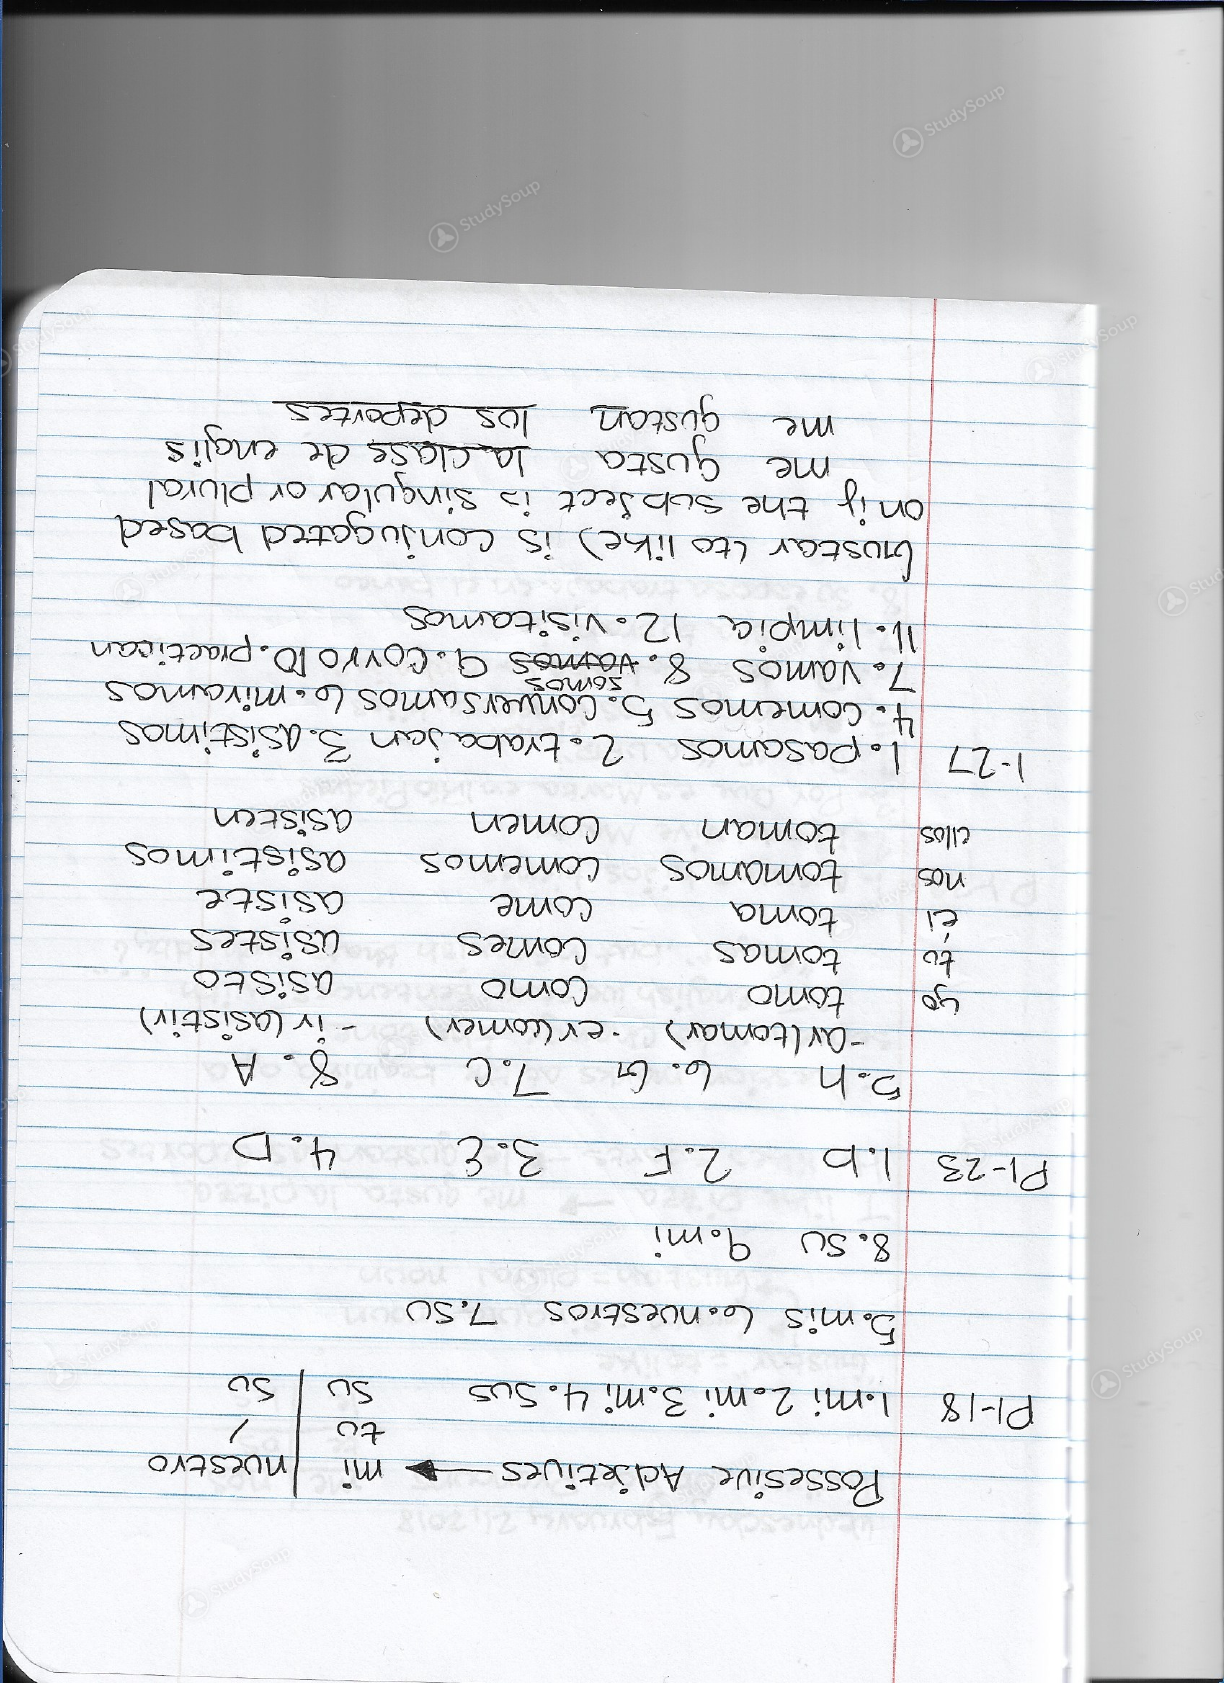 Possesive Adjetives → mi | nuestro
tu | /
P1-18 1.mi 2.mi 3.mi 4.sus su | su
5.mis 6.nuestros 7.su
8.su 9.mi
P1-23 1.b 2.F 3.E 4.D
5.h 6.G 7.C 8.A
-ar(tomar) -er(comer) -ir(asistir)
yo tomo como asisto
tú tomas comes asistes
él toma come asiste
nos tomamos comemos asistimos
ellos toman comen asisten
1-27 1.pasamos 2.trabajan 3.asistimos
4.comemos 5.conversamos 6.miramos
somos
7.vamos 8.vamos 9.corro 10.practican
11.limpia 12.visitamos
Gustar (to like) is conjugated based
on if the subject is singular or plural
me gusta la clase de englis
me gustan los deportes
StudySoup
StudySoup
StudySoup
StudySoup
StudySoup
StudySoup